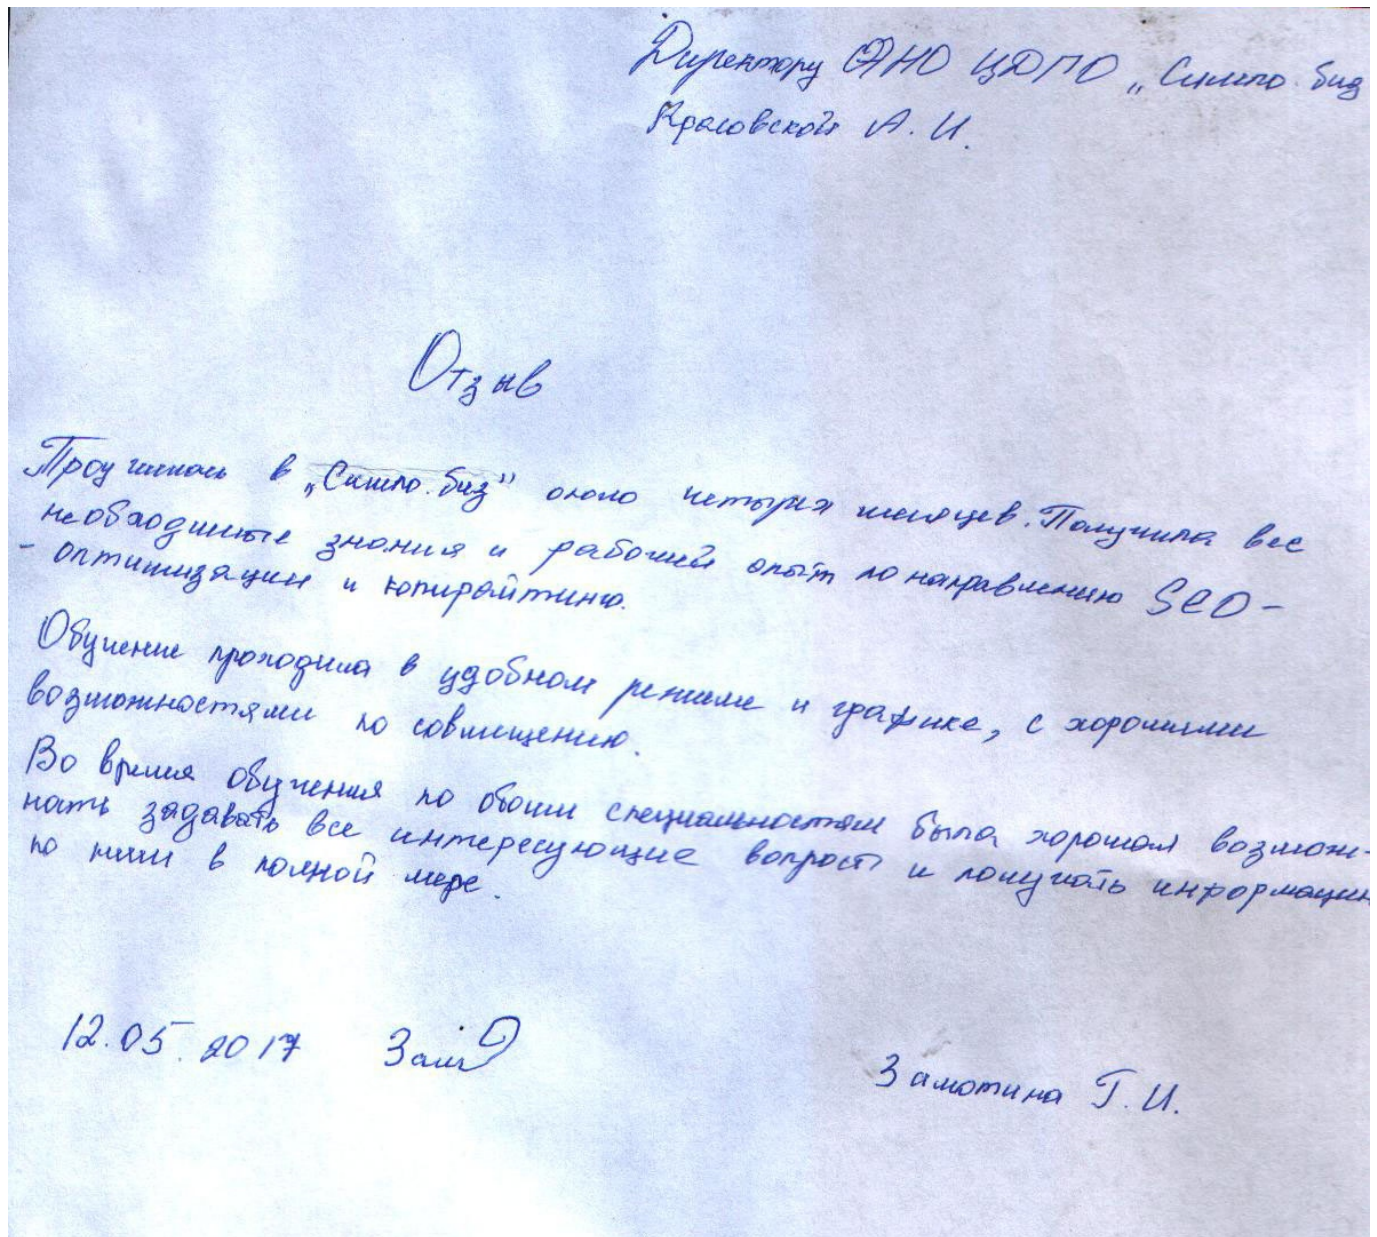 Директору АНО ЦДПО „Симпо.биз
Красовской А.И.
Отзыв
Проучилась в „Симпо.биз" около четырех месяцев. Получила все
необходимые знания и рабочий опыт по направлению SEO-
- оптимизации и копирайтинго.
Обучение проходила в удобном режиме и графике, с хорошими
возможностями по совмещению.
Во время обучения по обоим специальностям была хорошая возмож-
ность задавать все интересующие вопросы и получать информацию
по ним в полной мере.
12.05.2017
Замотина Г.И.